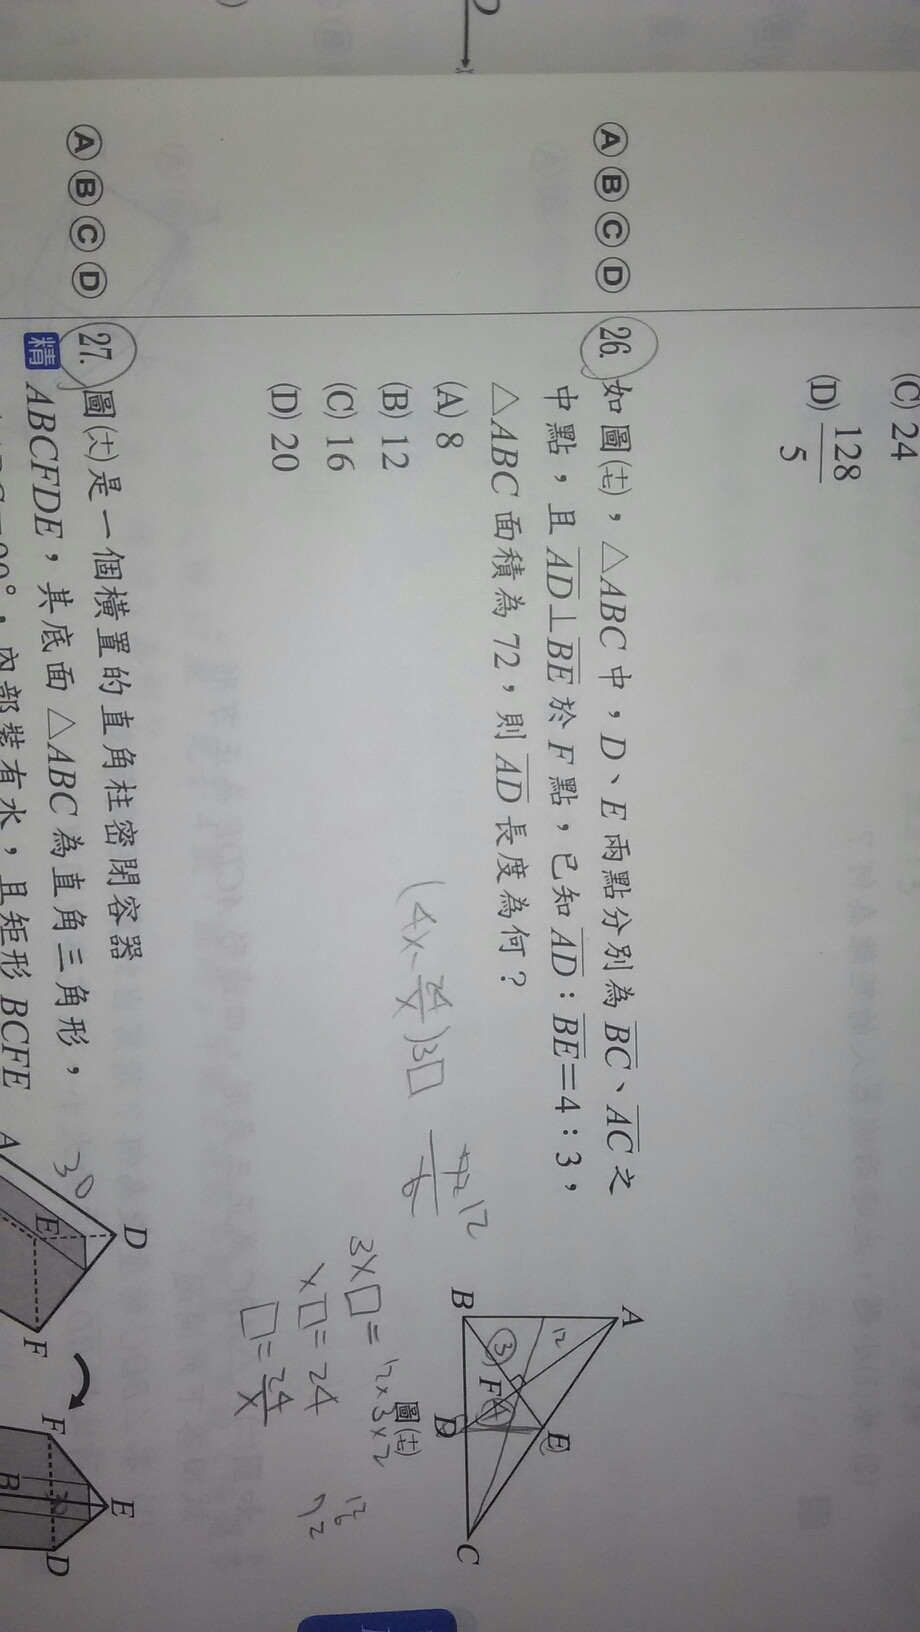 (C) 24
(D) 128/5
Ⓐ Ⓑ Ⓒ Ⓓ
26. 如圖(十五)，△ABC 中，D、E 兩點分別為 BC、AC 之
中點，且 AD⊥BE 於 F 點，已知 AD：BE＝4：3，
△ABC 面積為 72，則 AD 長度為何？
(A) 8
(B) 12
(C) 16
(D) 20
A
B
C
D
E
F
12
3
4
圖(十五)
(4x-24/x)3□
72/6 12
3x□= 12×3×2
x□= 24
□= 24/x
Ⓐ Ⓑ Ⓒ Ⓓ
27. 圖(十六)是一個橫置的直角柱密閉容器
精 ABCFDE，其底面△ABC 為直角三角形，
內部裝有水，且矩形 BCFE
30
A
D
E
F
F
E
B
D